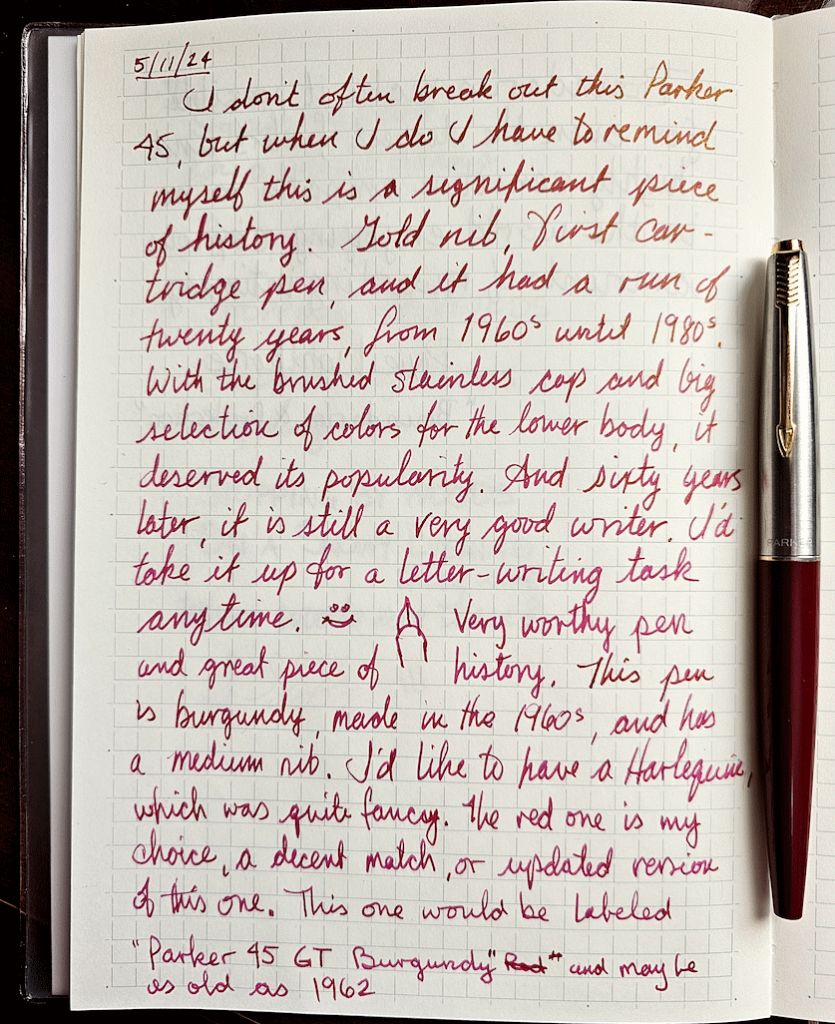 5/11/24
I don't often break out this Parker
45, but when I do I have to remind
myself this is a significant piece
of history. Gold nib, first car-
tridge pen, and it had a run of
twenty years, from 1960s until 1980s.
With the brushed stainless cap and big
selection of colors for the lower body, it
deserved its popularity. And sixty years
later, it is still a very good writer. I'd
take it up for a letter-writing task
anytime. Very worthy pen
and great piece of history. This pen
is burgundy, made in the 1960s, and has
a medium nib. I'd like to have a Harlequine,
which was quite fancy. The red one is my
choice, a decent match, or updated version
of this one. This one would be labeled
"Parker 45 GT Burgundy" Red" and may be
as old as 1962
PARKER